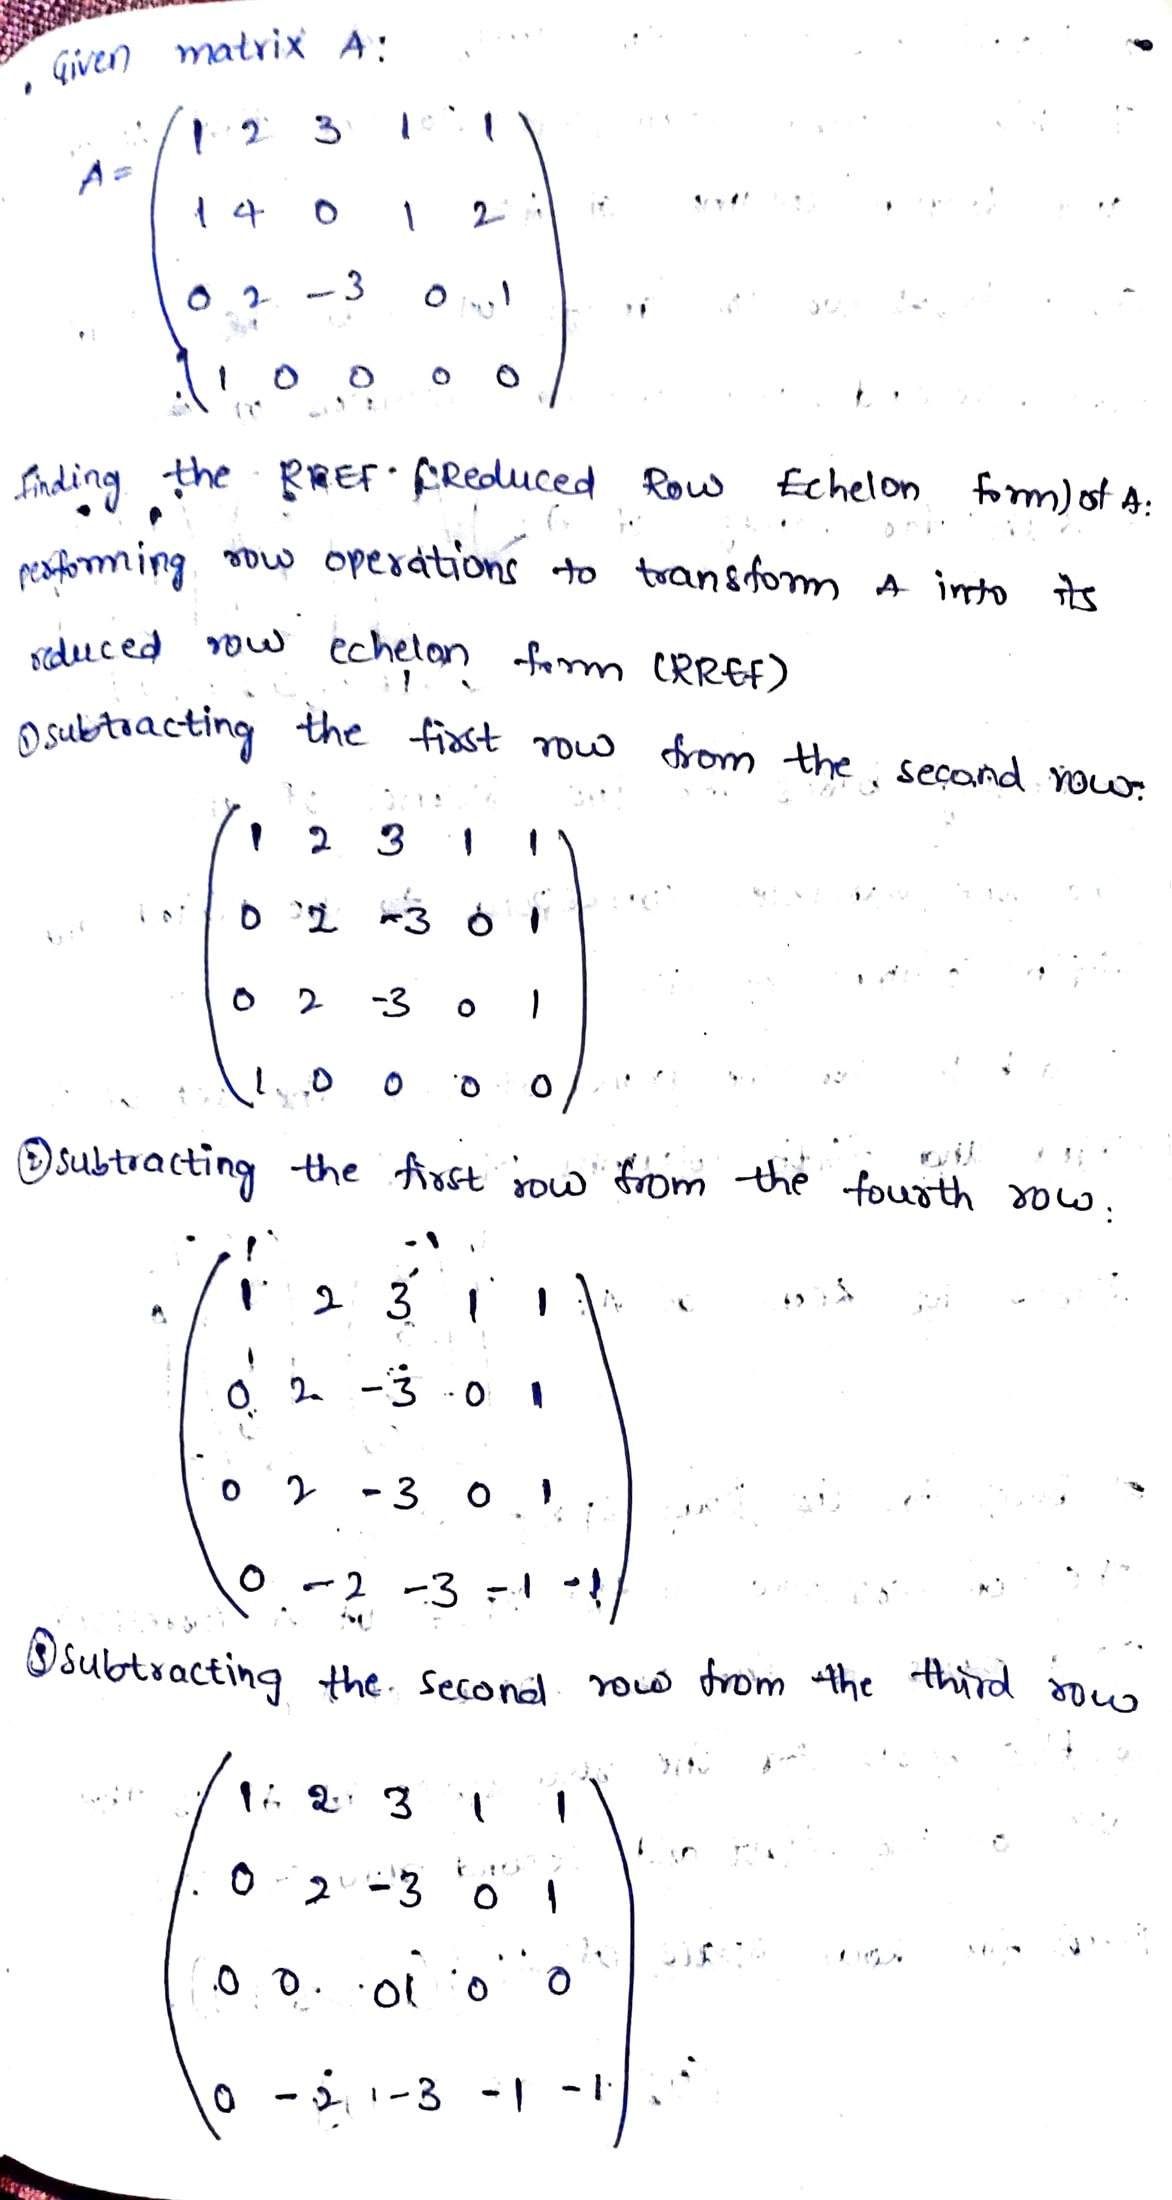 Given matrix A:
A=
1 2 3 1 1
1 4 0 1 2
0 2 -3 0 1
1 0 0 0 0
finding the RREF (Reduced Row Echelon form) of A:
performing row operations to transform A into its
reduced row echelon form (RREF)
① subtracting the first row from the second row:
1 2 3 1 1
0 2 -3 0 1
0 2 -3 0 1
1 0 0 0 0
② subtracting the first row from the fourth row:
1 2 3 1 1
0 2 -3 0 1
0 2 -3 0 1
0 -2 -3 -1 -1
③ subtracting the second row from the third row
1 2 3 1 1
0 2 -3 0 1
0 0 01 0 0
0 -2 -3 -1 -1